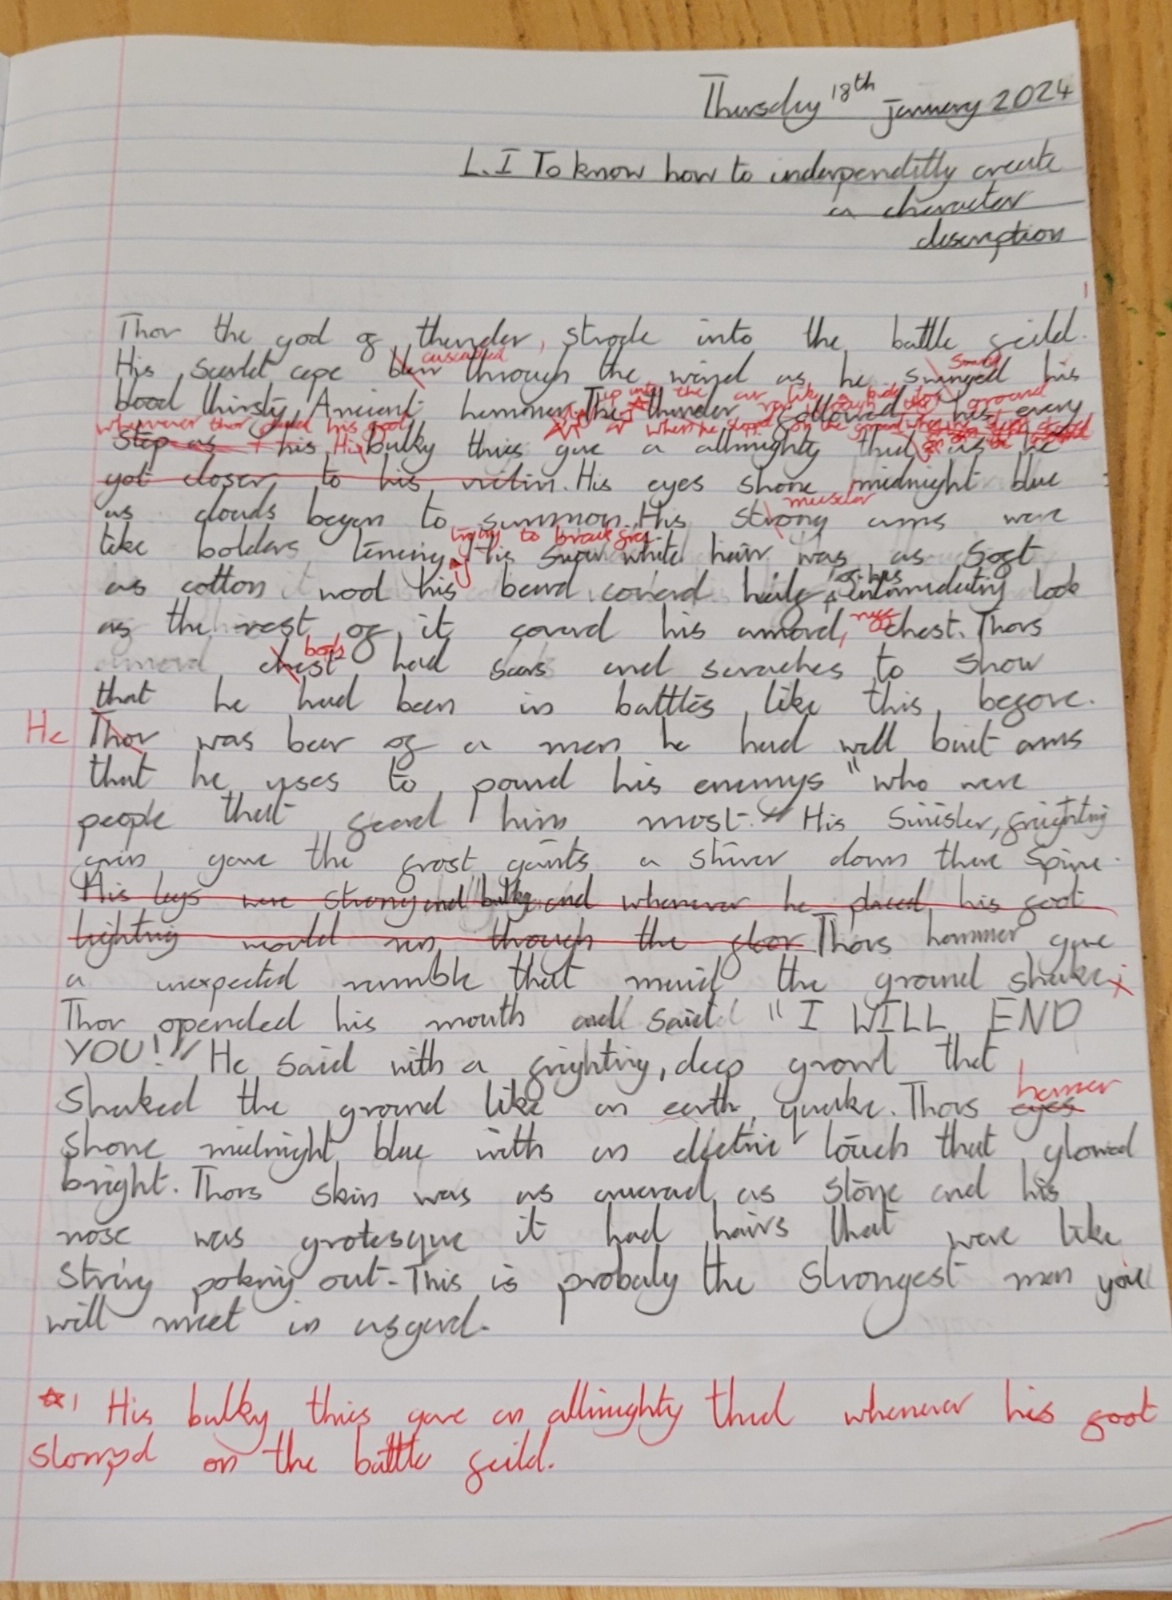 Thursday 18th january 2024
L.I To know how to inderpenditly create
a character
discription
1
Thor the god of thunder, strode into the battle feild.
cascaded Swung
His Scarlet cape blew through the wind as he swinged his
up into the air like a
blood thirsty, Ancient hammer. The thunder followed his every
whenever thor placed his foot
step as his His bulky thies gave a allmighty thud as he
got closer to his victim. His eyes shone midnight blue
muscular
as clouds began to summon. His strong arms were
trying to break free
like bolders tensing. His Snow white hair was as Soft
of his
as cotton wool his beard coverd half intamedating look
as the rest of it coverd his amord, chest. Thors
body
amord chest had scars and scraches to show
that he had been in battles like this before.
He Thor was bear of a man he had well built arms
that he uses to pound his enemys "who were
people that feard him most." His Sinister, frighting
grin gave the frost gaints a shiver down there spine.
His legs were strong and bulky and whenever he placed his foot
lighting would run through the floor Thors hammer gave
a unexpected rumble that maid the ground shake.
Thor opended his mouth and said "I WILL END
YOU!" He said with a frighting, deep growl that
hamer
shaked the ground like an earth quake. Thors eyes
shone midnight blue with an electric touch that glowed
bright. Thors skin was as as stone and his
nose was grotesque it had hairs that were like
string poking out. This is probaly the strongest man you
will meet in asgard.
☆1 His bulky thies gave an allmighty thud whenever his foot
stompd on the battle feild.